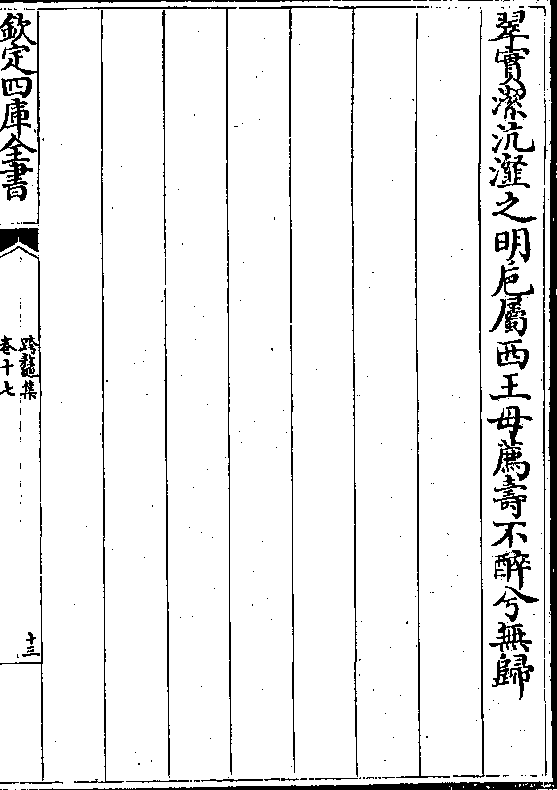 翠實潔沆瀣之明卮屬西王母薦壽不醉兮無歸
欽定四庫全書
跨鼇集
卷十七
十三